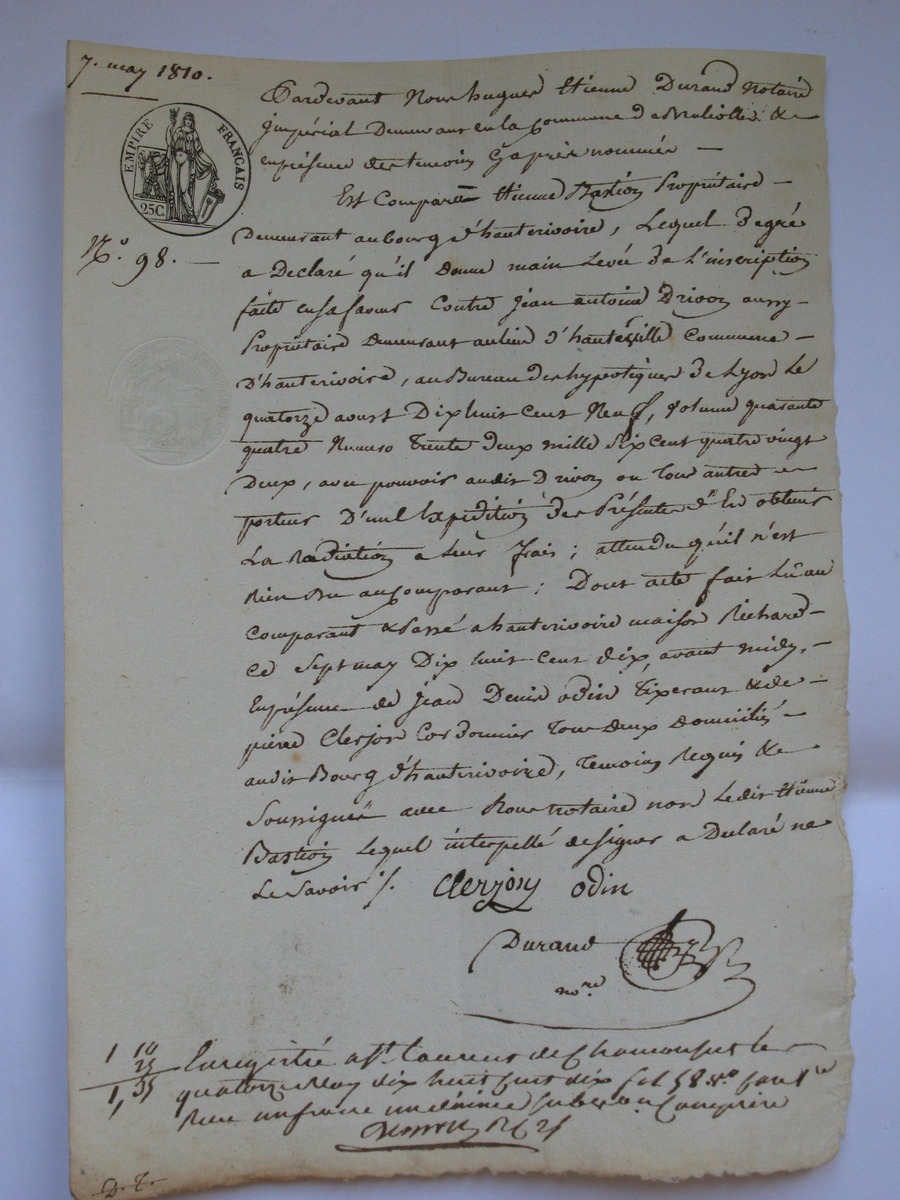 7. may 1810.
EMPIRE FRANÇAIS
25C.
N.º 98.
Pardevant Nous hugues Etienne Durand Notaire
Impérial Demeurant en la Commune d'a &
en présence des temoins cy après nommés
Est Comparu Etienne Bastion Propriétaire
Demeurant au bourg d'hauterivoire, Lequel de gré
a Declaré qu'il donne main Levée de L'inscription
faite en sa faveur Contre Jean antoine Drivon aussy
Propriétaire demeurant au lieu d'hauteville Commune
D'hauterivoire, au Bureau des hypoteques de Lyon Le
quatorze aoust Dix huit cent Neuf, volume quarante
quatre Numero trente deux mille Six Cent quatre vingt
Deux, avec pouvoir audit Drivon ou tous autres
porteur D'une Expedition des Présentes d'En obtenir
La Radiation a Leur frais; attendu qu'il n'est
Rien Du au Comparant; Dont acte fait Lu au
Comparant & Passé a hauterivoire maison Richard
ce Sept may Dix huit cent dix, avant midy,
En présence de Jean Denis odin Tixerant & de
pierre Clerjon Cordonnier tous deux domiciliés
audit Bourg d'hauterivoire, temoins Requis &
Soussignés avec Nous notaire non Ledit Etienne
Bastion Lequel interpellé de signer a Declaré ne
Le Savoir ./.
Clerjon odin
Durand
no.re
1 10
25
1, 35
Enregistré a St. Laurent de Chamousset le
quatorze May dix huit cent dix fol 58 Rº
Reçu un franc un décime subvon Comprise
D. T.